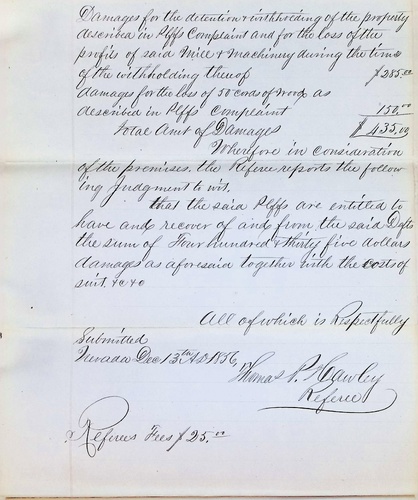 Damages for the detention & withholding of the property
described in Plffs Complaint and for the loss of the
profits of said Mill & Machinery during the time
of the withholding thereof $285.00
damages for the loss of 50 cords of wood as
described in Plffs Complaint 150.00
Total Amt of Damages $435.00
Wherefore in consideration
of the premises, the Referee reports the follow
ing Judgment to wit,
that the said Plffs are entitled to
have and recover of and from the said Defts
the sum of Four hundred & thirty five dollars
damages as aforesaid together with the costs of
suit &c &c
All of which is Respectfully
Submitted
Nevada Dec 13th AD 1856,
Thomas P. Hawley
Referee
Referees Fees $25.00